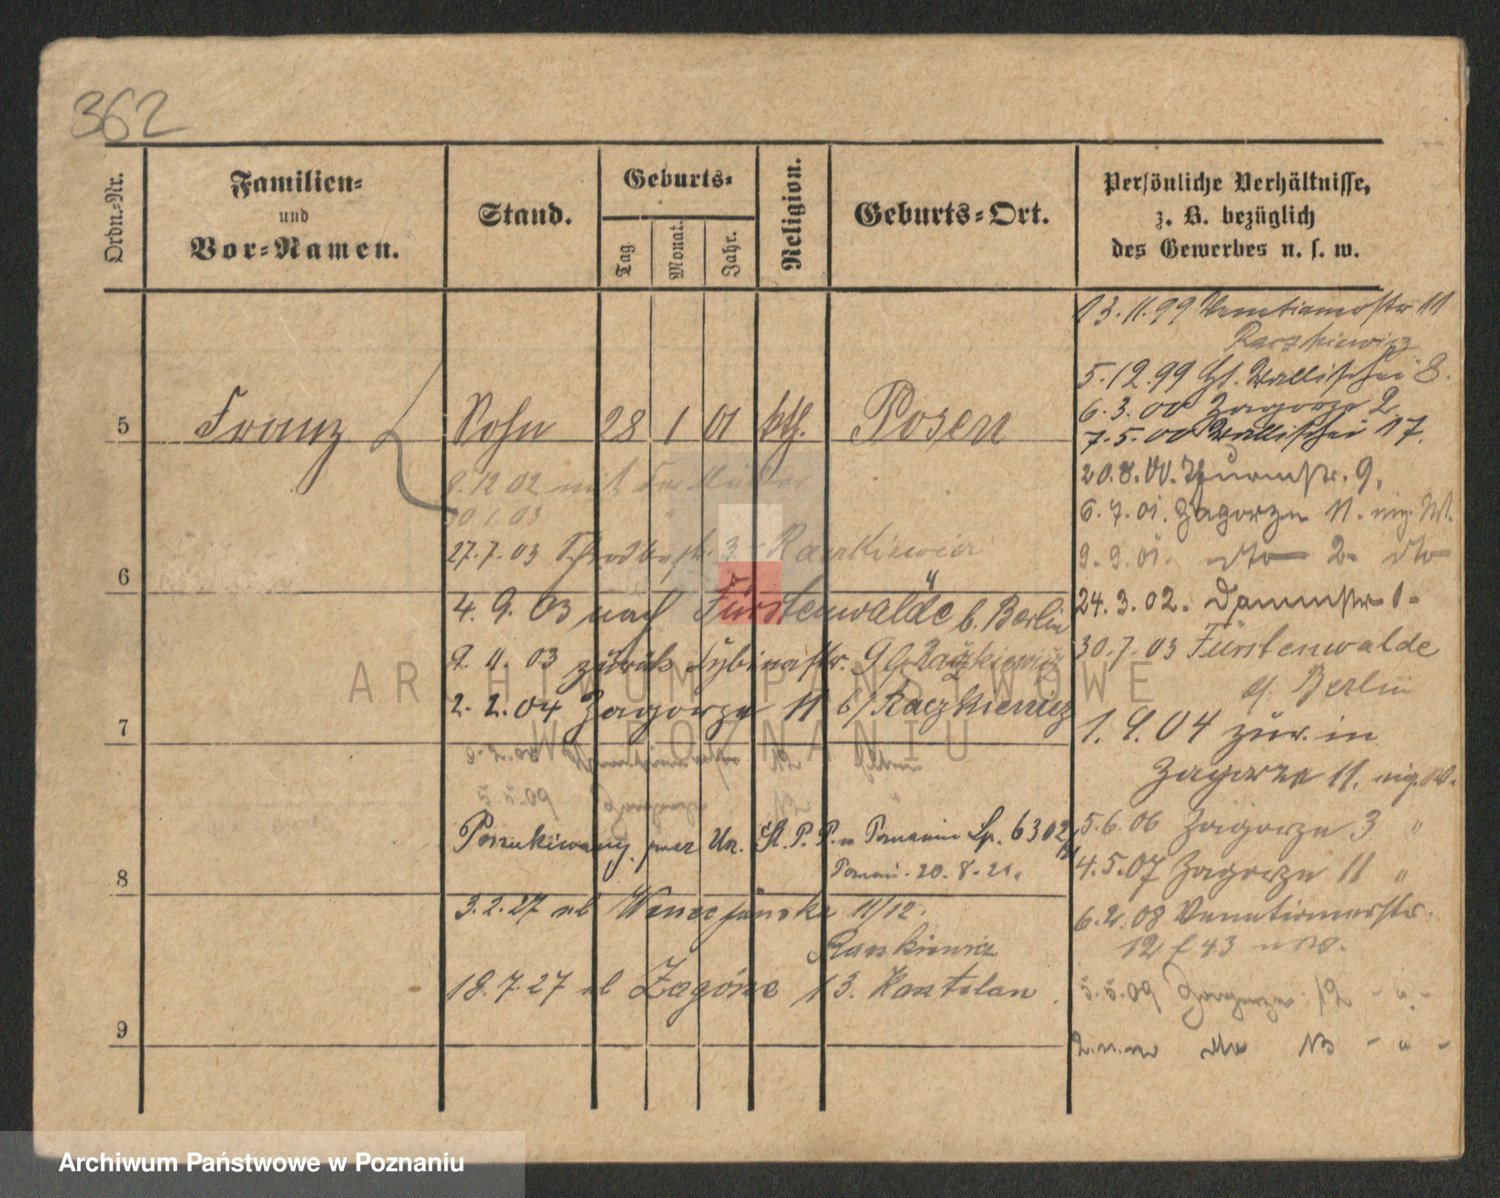 362
Ordn.-Nr.
Familien-
und
Vor-Namen.
Stand.
Geburts-
Tag.
Monat.
Jahr.
Religion.
Geburts-Ort.
Persönliche Verhältnisse,
z. B. bezüglich
des Gewerbes u. s. w.
5 Franz Sohn 28 1 01 kth. Posen
8.12.02 mit der Mutter
30.1.03
27.7.03 3 Raczkiewicz
6
4.9.03 nach Fürstenwalde b. Berlin
9.11.03 zurück 9 Raczkiewicz
2.2.04 Zagorze 11 b/ Raczkiewicz
7
12 Eltern
5.5.09 Zagorze 12 "
Poszukiwany przez Urz. St. P. P. w Poznaniu Lp. 6302
Poznań. 20.8.21.
8
3.2.27 ul Wenecjańska 11/12.
Raczkiewicz
18.7.27 ul Zagórze 13. Kasztelan.
9
13.11.99 Venetianerstr 11
Raczkiewicz
5.12.99 Wallischei 8.
6.3.00 Zagorze 2
7.5.00 Wallischei 17.
20.8.00. Thurmstr. 9.
6.7.01. Zagorze 11.
9.9.01. dto 2. dto
24.3.02. Dammstr 1.
30.7.03 Fürstenwalde
b/ Berlin
1.9.04 zur. in
Zagorze 11.
5.6.06 Zagorze 3 "
4.5.07 Zagorze 11 "
6.2.08 Venetianerstr.
12
5.5.09 Zagorze 12 - " -
dto 13 - " -
ARCHIWUM PAŃSTWOWE
W POZNANIU
Archiwum Państwowe w Poznaniu